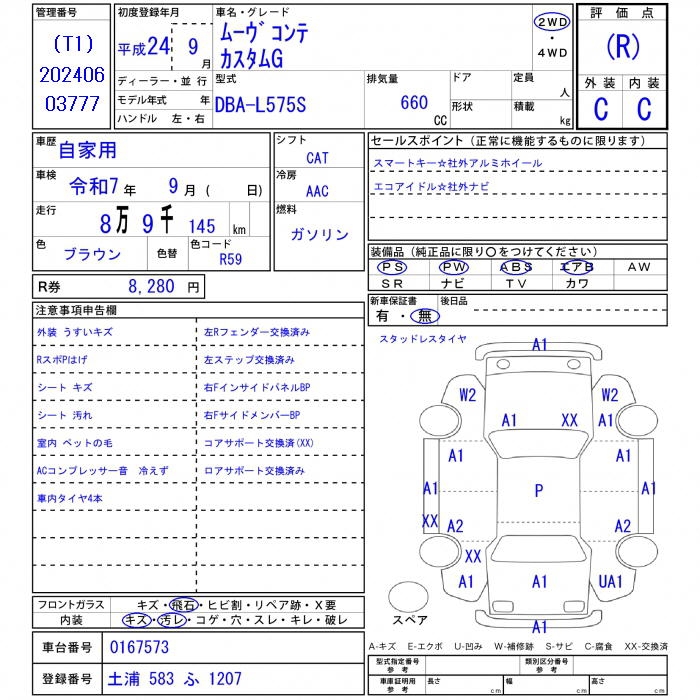 管理番号
(T1)
202406
03777
初度登録年月
平成24 9月
ディーラー・並行
モデル年式 年
ハンドル 左・右
車名・グレード
ムーヴ コンテ
カスタムG
2WD
・
4WD
型式
DBA-L575S
排気量
660
CC
ドア
形状
定員
人
積載
kg
評価点
(R)
外装 内装
C C
車歴
自家用
車検
令和7年 9月( 日)
走行
8万9千145 km
色
ブラウン
色替
色コード
R59
シフト
CAT
冷房
AAC
燃料
ガソリン
セールスポイント(正常に機能するものに限ります)
スマートキー☆社外アルミホイール
エコアイドル☆社外ナビ
装備品(純正品に限り〇をつけてください)
PS PW ABS エアB AW
SR ナビ TV カワ
R券 8,280 円
新車保証書
有・無
後日品
注意事項申告欄
外装 うすいキズ 左Rフェンダー交換済み
RスポPはげ 左ステップ交換済み
シート キズ 右FインサイドパネルBP
シート 汚れ 右FサイドメンバーBP
室内 ペットの毛 コアサポート交換済(XX)
ACコンプレッサー音 冷えず ロアサポート交換済み
車内タイヤ4本
スタッドレスタイヤ
A1
W2 W2
A1 XX A1
A1 A1
A1 P A1
XX A2 A2
XX
A1 A1 UA1
スペア
A1
フロントガラス キズ・飛石・ヒビ割・リペア跡・X要
内装 キズ・汚レ・コゲ・穴・スレ・キレ・破レ
車台番号 0167573
登録番号 土浦 583 ふ 1207
A-キズ E-エクボ U-凹み W-補修跡 S-サビ C-腐食 XX-交換済
型式指定番号
参考
類別区分番号
参考
車庫証明用
参考
長さ cm 幅 cm 高さ cm